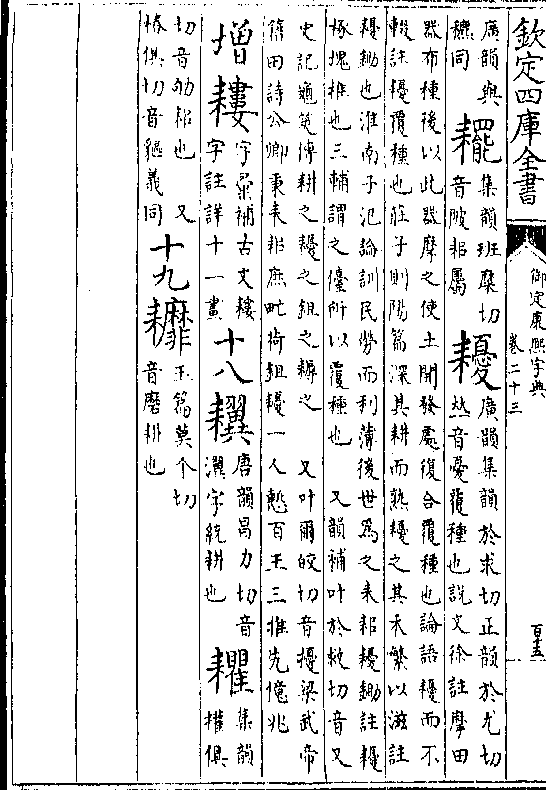 欽定四庫全書
御定康熙字典
卷二十三
百五
廣韻與
穮同
䎱
集韻班糜切
音陂耜屬
耰
廣韻集韻於求切正韻於尤切
𠀤音憂覆種也說文徐註摩田
器布種後以此器摩之使土開發處復合覆種也論語耰而不
輟註耰覆種也莊子則陽篇深其耕而熟耰之其禾繁以滋註
耰鋤也淮南子氾論訓民勞而利薄後世爲之耒耜耰鋤註耰
椓塊椎也三輔謂之儓所以覆種也 又韻補叶於救切音又
史記龜筴傳耕之耰之鉏之耨之 又叶爾皎切音擾梁武帝
籍田詩公卿秉耒耜庶甿荷鉏耰一人慙百王三推先億兆
增耬
字彙補古文耬
字註詳十一畫
十八
唐韻昌力切音
字統耕也
集韻
權俱
切音劬耜也 又
恪俱切音軀義同
十九
玉篇莫个切
音磨耕也